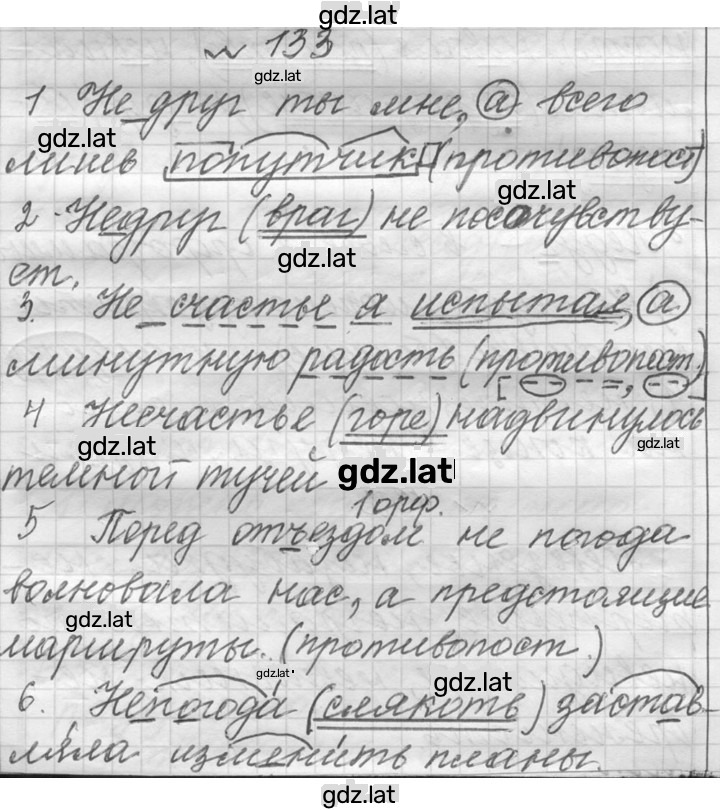 gdz.lat
№ 133
gdz.lat
1 Не друг ты мне, а всего
gdz.lat
лишь попутчик (противопост)
gdz.lat
2. Недруг (враг) не посочувству-
gdz.lat
ет.
3. Не счастье я испытал, а
минутную радость (противопост.)
4 Несчастье (горе) надвинулось
gdz.lat
gdz.lat
темной тучей
gdz.lat
1 орф.
5 Перед отъездом не погода
волновала нас, а предстоящие
gdz.lat
маршруты. (противопост.)
gdz.lat
gdz.lat
6. Непогода (слякоть) застав-
ляла изменить планы.
gdz.lat